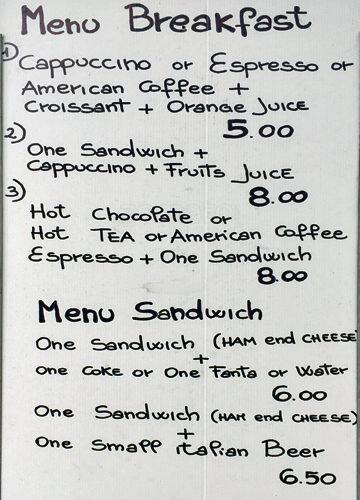 Menu Breakfast
1) Cappuccino or Espresso or
American Coffee +
Croissant + Orange Juice
5.00
2) One Sandwich +
Cappuccino + Fruits Juice
8.00
3) Hot Chocolate or
Hot TEA or American Coffee
Espresso + One Sandwich
8.00
Menu Sandwich
One Sandwich (HAM end CHEESE
+
One Coke or One Fanta or Water
6.00
One Sandwich (HAM end CHEESE)
+
One Small italian Beer
6.50